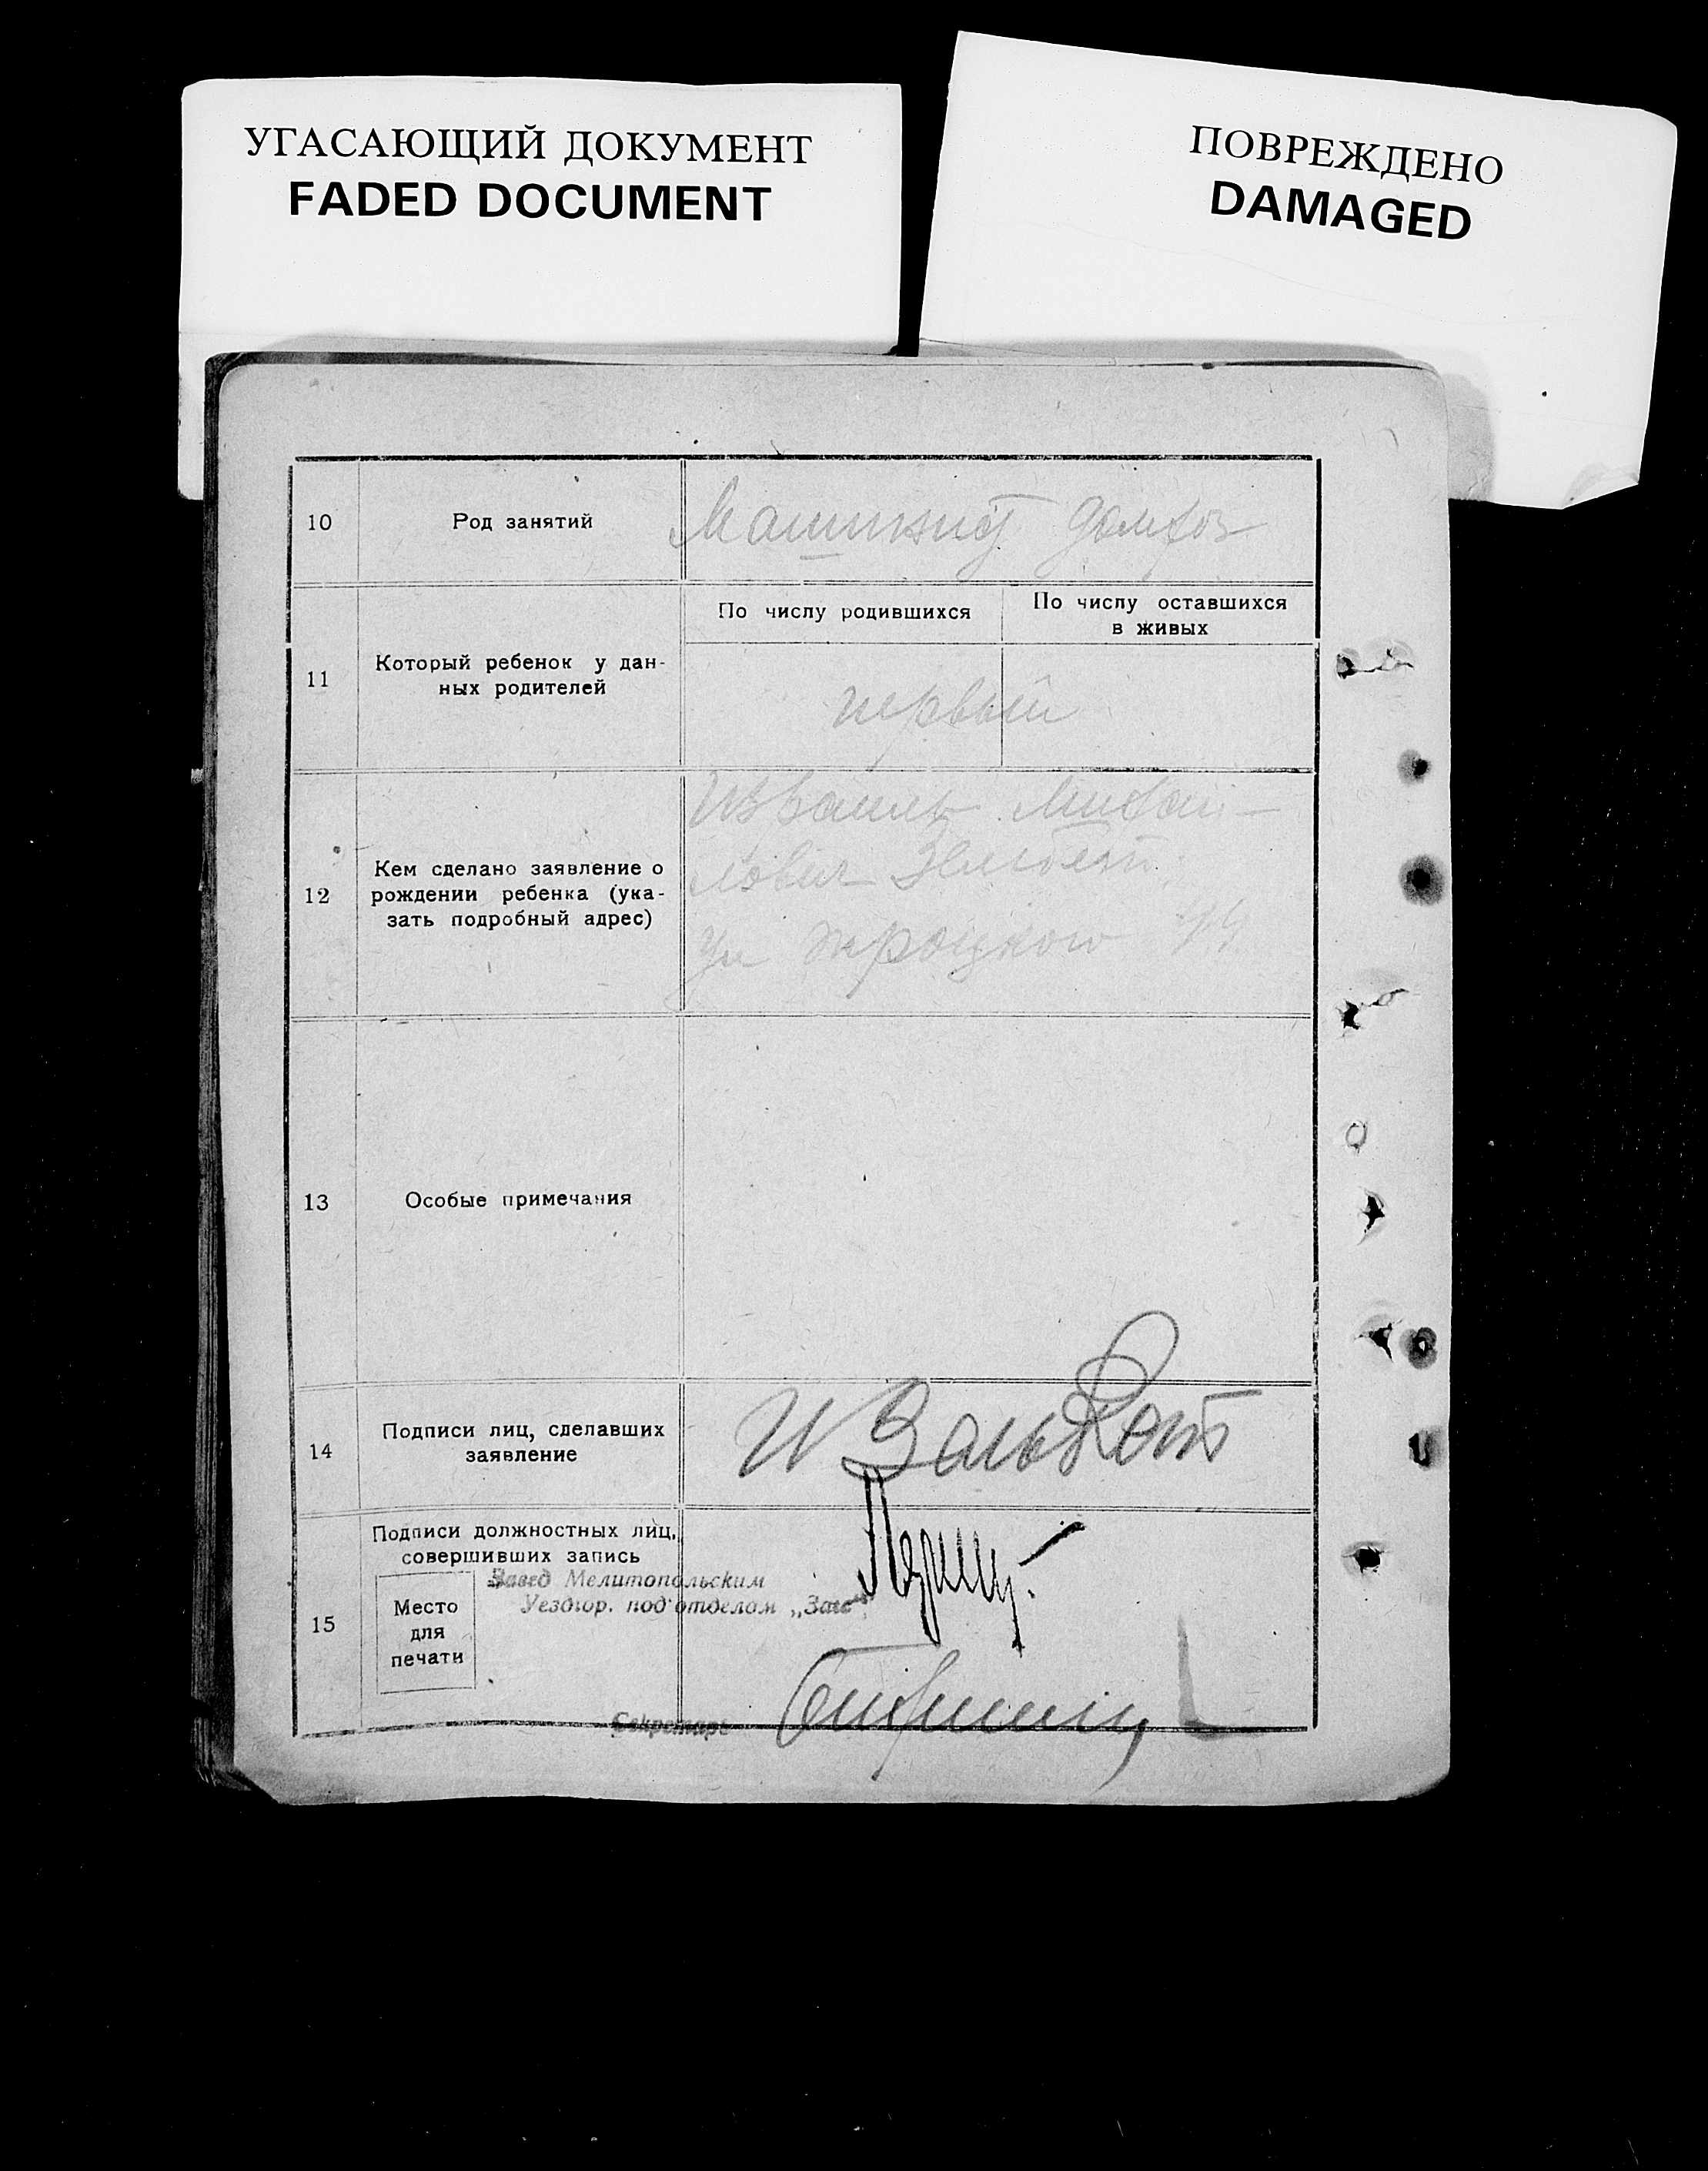 УГАСАЮЩИЙ ДОКУМЕНТ
FADED DOCUMENT
ПОВРЕЖДЕНО
DAMAGED
10
Род занятий
Машинист домхоз
11
Который ребенок у дан-
ных родителей
По числу родившихся
По числу оставшихся
в живых
первый
12
Кем сделано заявление о
рождении ребенка (ука-
зать подробный адрес)
Михай-
лович
Ул Троцкого
13
Особые примечания
14
Подписи лиц, сделавших
заявление
И
15
Подписи должностных лиц,
совершивших запись
Завед Мелитопольским
Уездгор. под'отделом „Загс"
Место
для
печати
Секретарь